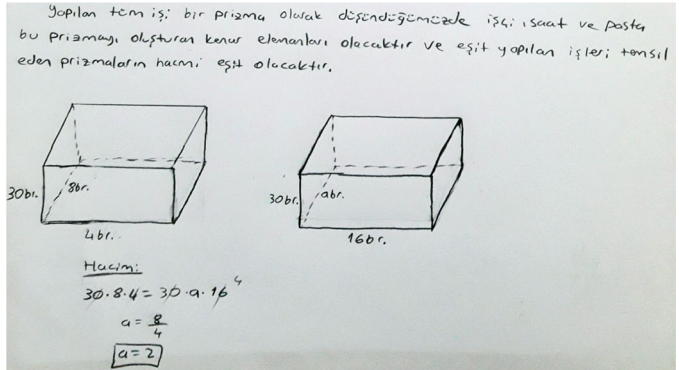 Yapılan tüm işi bir prizma olarak düşündüğümüzde işçi, saat ve posta
bu prizmayı oluşturan kenar elemanları olacaktır ve eşit yapılan işleri temsil
eden prizmaların hacmi eşit olacaktır.
30br. 8br. 30br. abr.
4br. 16br.
Hacim:
30.8.4 = 30.a.16 4
a = 8/4
a = 2